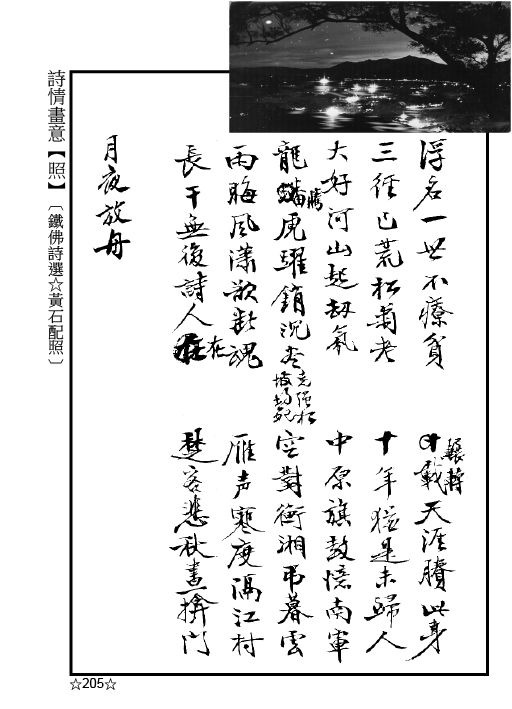 浮名一世不療貧 載天涯賸此身
三徑已荒松菊老 十年猶是未歸人
大好河山起劫氛 中原旗鼓憶南軍
龍騰虎躍銷沉盡 空對衡湘弔暮雲
雨晦風瀟欲斷魂 雁声寒度隔江村
長干無復詩人在 楚客悲秋晝掩門
月夜放舟
詩情畫意【照】〔鐵佛詩選☆黃石配照〕
☆205☆